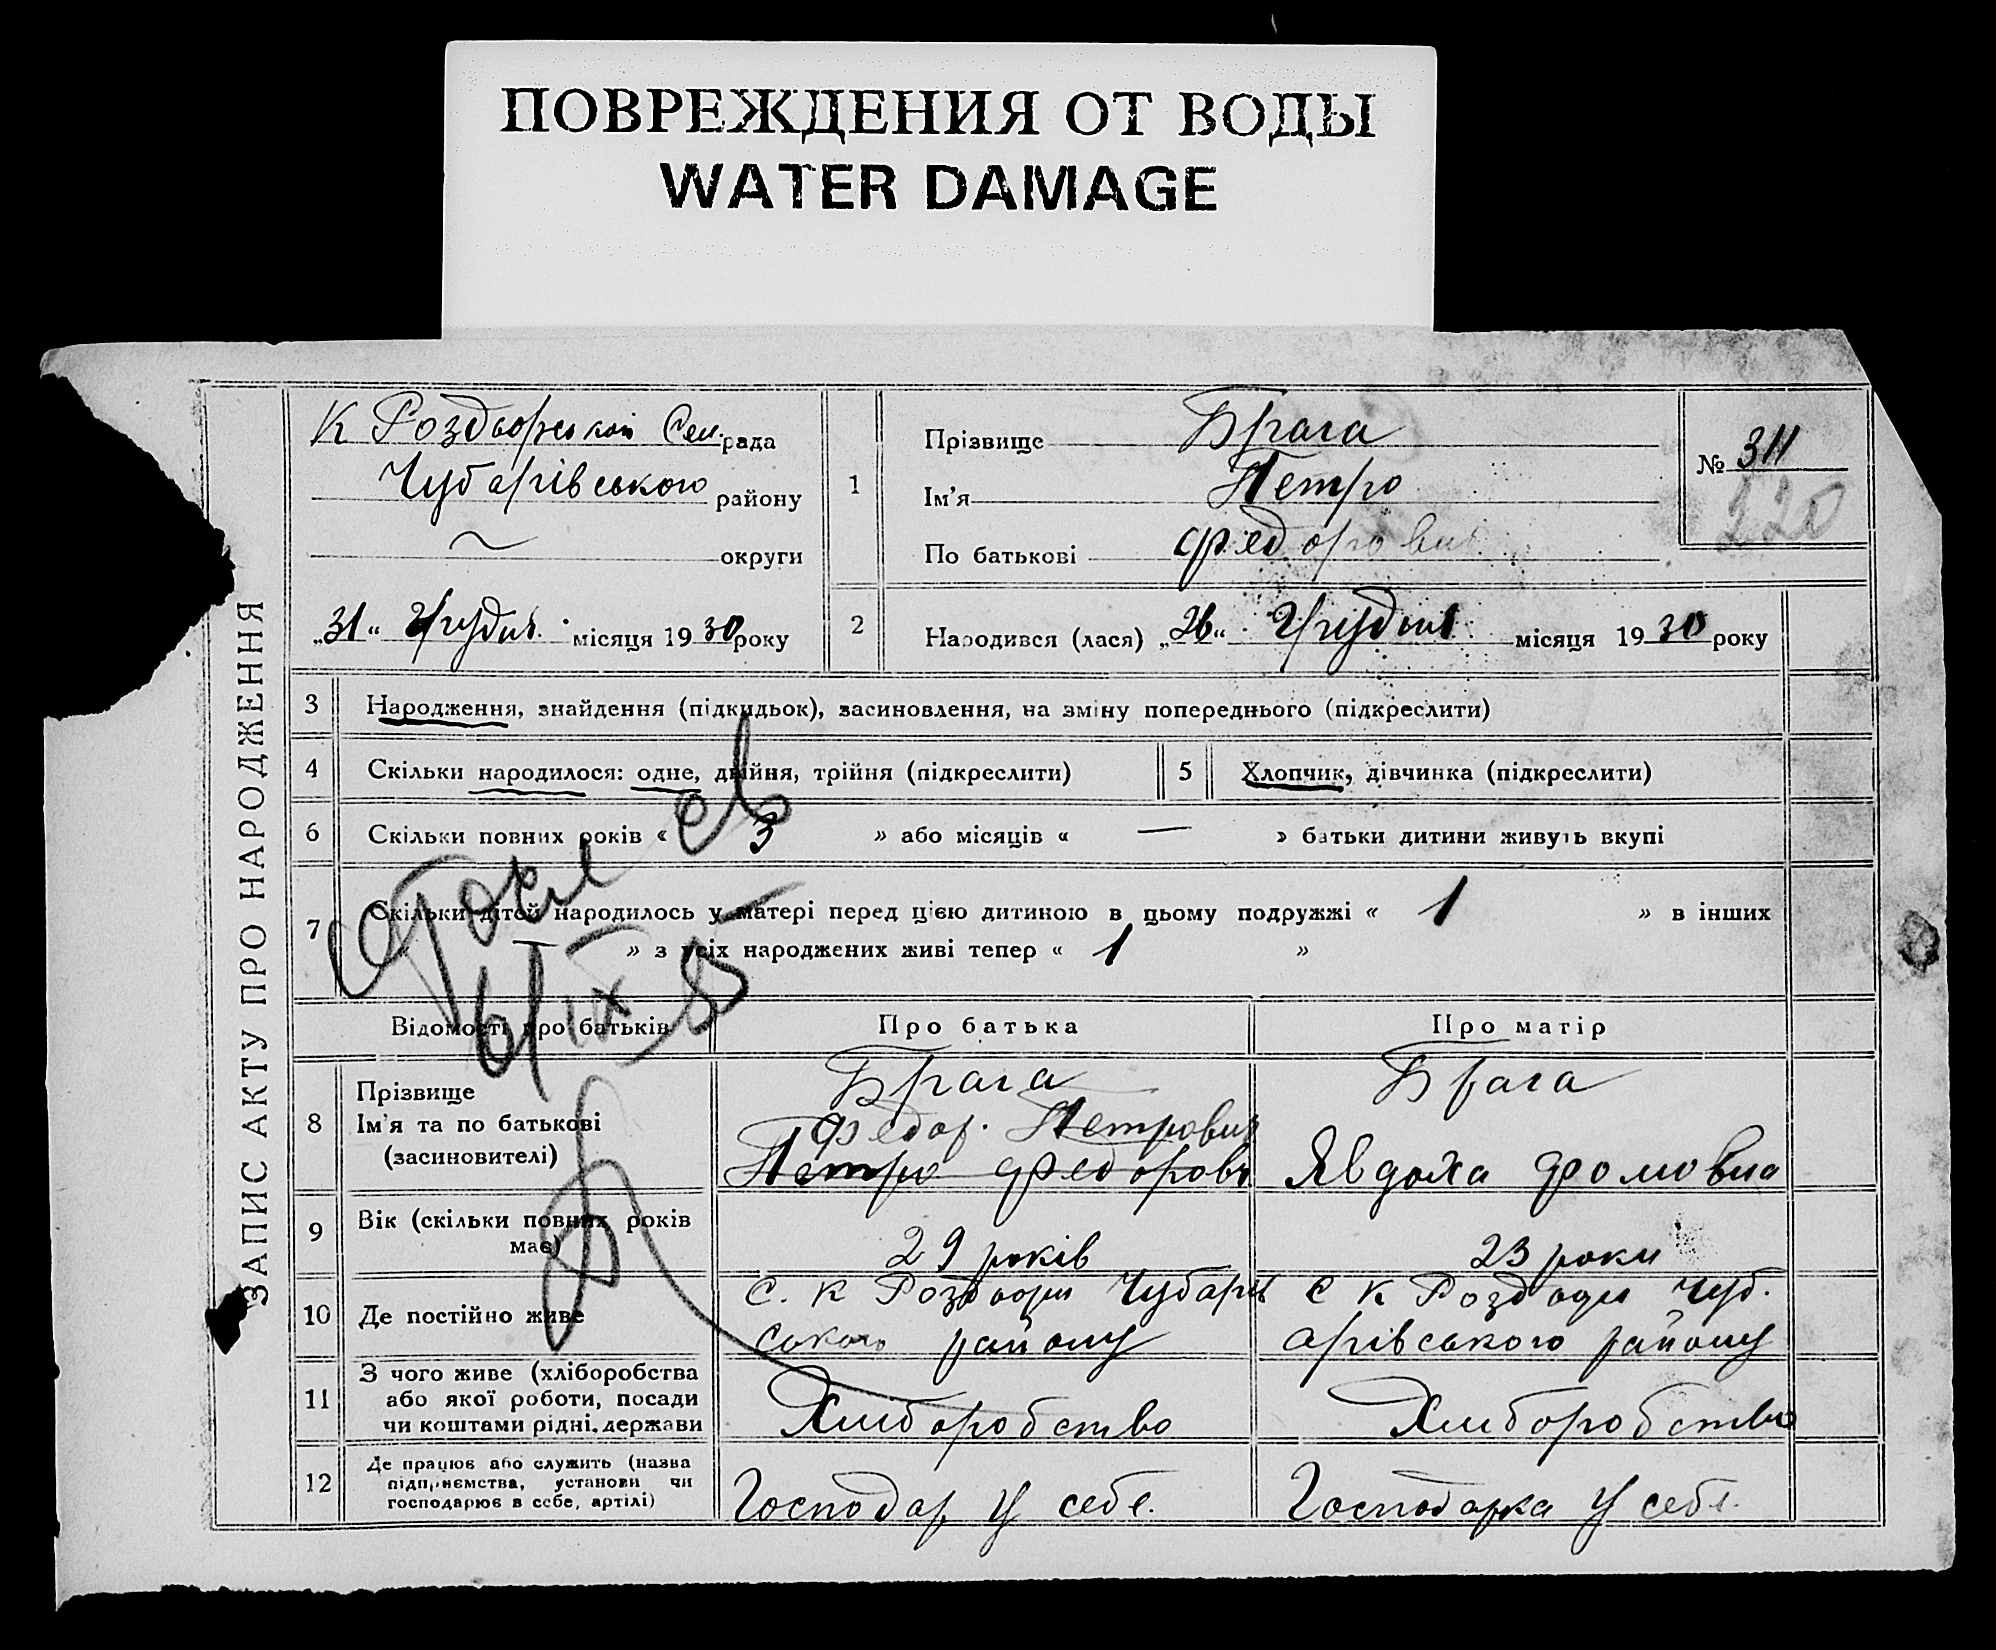 ПОВРЕЖДЕНИЯ ОТ ВОДЫ
WATER DAMAGE
ЗАПИС АКТУ ПРО НАРОДЖЕННЯ
К Роздорской Сел. рада
Чубарівського району
округи
„31“ Грудня місяця 1930 року
1
Прізвище Брага
Ім'я Петро
По батькові Федорович
№ 311
220
2
Народився (лася) „26“ Грудня місяця 1930 року
3 Народження, знайдення (підкидьок), засиновлення, на зміну попереднього (підкреслити)
4 Скільки народилося: одне, двійня, трійня (підкреслити)
5 Хлопчик, дівчинка (підкреслити)
6 Скільки повних років « 3 » або місяців « — » батьки дитини живуть вкупі
7 Скільки дітей народилось у матері перед цією дитиною в цьому подружжі « 1 » в інших
— » з усіх народжених живі тепер « 1 »
6/IX
Відомості про батьків
Про батька
Про матір
8
Прізвище
Ім'я та по батькові
(засиновителі)
Брага
Федор. Петрович
Петро Федорови
Брага
Явдоха Фомовна
9
Вік (скільки повних років
має)
29 років
23 роки
10 Де постійно живе
С. К Роздори Чубарів
ського району
С К Роздори Чуб.
арівського району
11
З чого живе (хліборобства
або якої роботи, посади
чи коштами рідні, держави
Хліборобство
Хліборобство
12
Де працює або служить (назва
підприємства, установи чи
господарює в себе, артілі)
Господар У себе.
Господарка У себе.